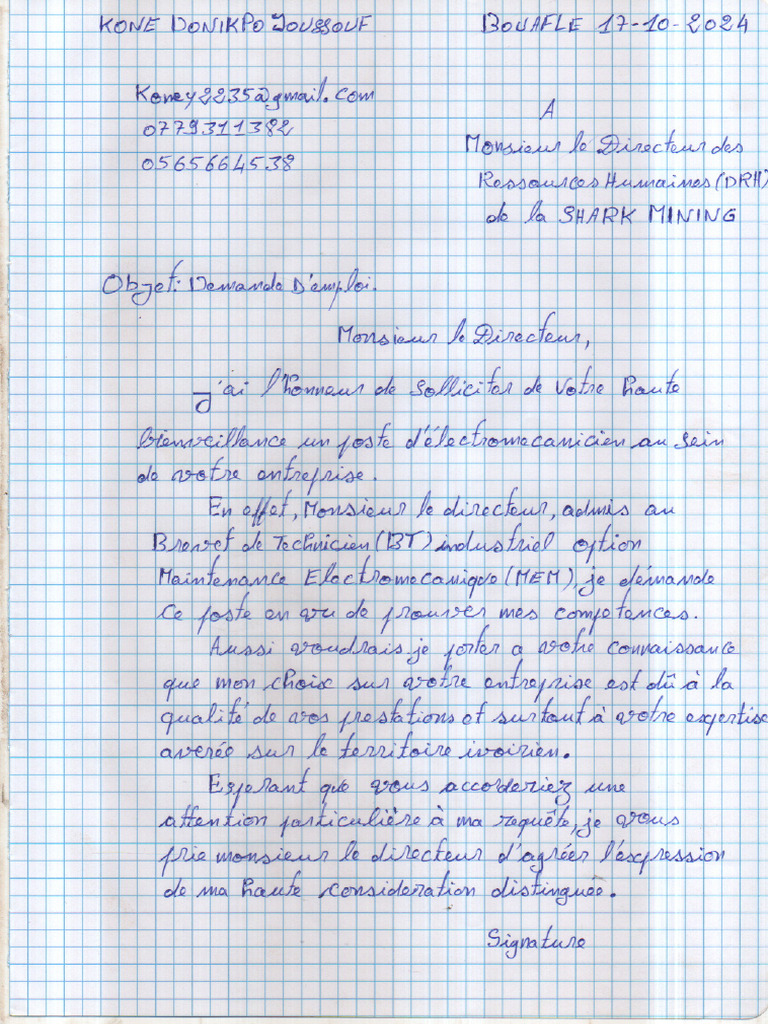 KONE DONIKPO YOUSSOUF BOUAFLE 17-10-2024
Koney2235@gmail.com
0779311382
0565664538
A
Monsieur le Directeur des
Ressources Humaines (DRH)
de la SHARK MINING
Objet: Demande D'emploi.
Monsieur le Directeur,
J'ai l'honneur de solliciter de votre haute
bienveillance un poste d'électromecanicien au sein
de votre entreprise.
En effet, Monsieur le directeur, admis au
Brevet de Technicien (BT) industriel option
Maintenance Electromecanique (MEM), je démande
ce poste en vu de prouver mes competences.
Aussi voudrais-je porter a votre connaissance
que mon choix sur votre entreprise est dû à la
qualité de vos prestations et surtout à votre expertise
averée sur le territoire ivoirien.
Esperant que vous accorderiez une
attention particulière à ma requête, je vous
prie monsieur le directeur d'agréer l'expression
de ma haute consideration distinguée.
Signature